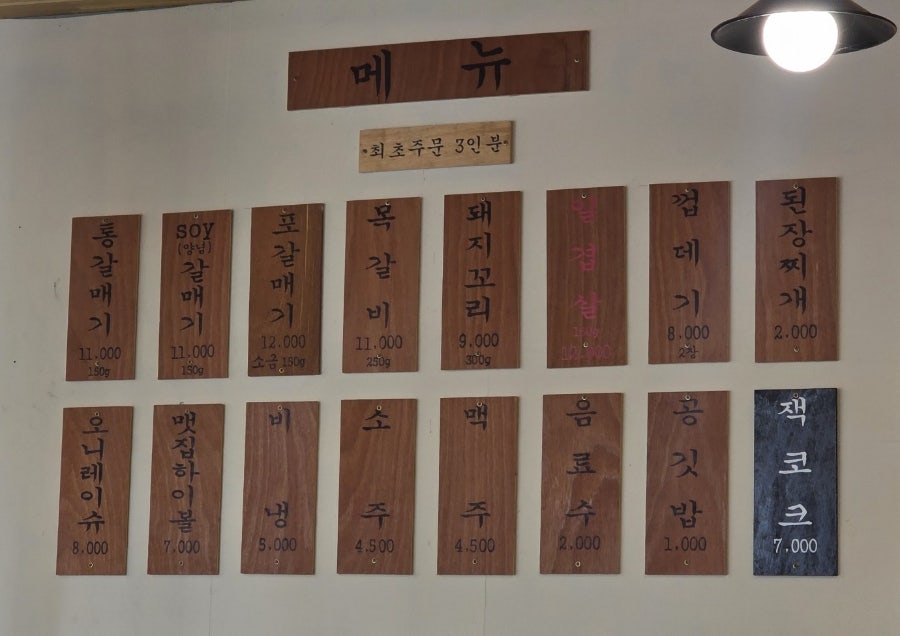 메뉴
최초주문 3인분
통갈매기
11.000
150g
soy
(양념)
갈매기
11.000
150g
포갈매기
12.000
소금 150g
목갈비
11.000
250g
돼지꼬리
9.000
300g
겹살
껍데기
8.000
2장
된장찌개
2.000
오니레이슈
8.000
맷집하이볼
7.000
비냉
5.000
소주
4.500
맥주
4.500
음료수
2.000
공깃밥
1.000
잭코크
7.000